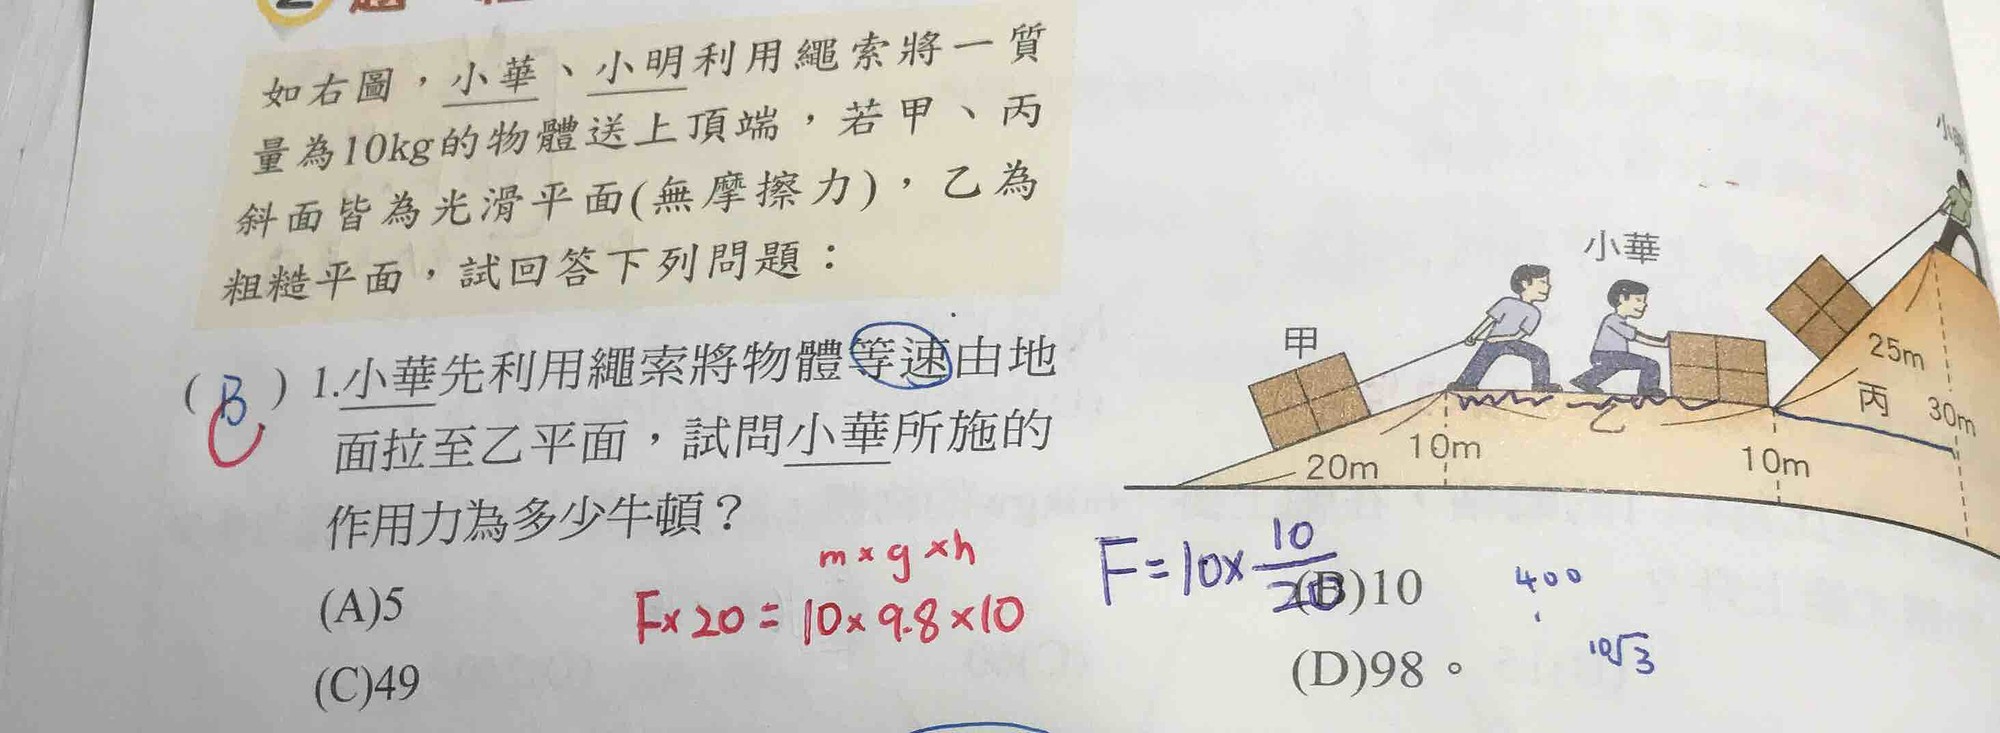 如右圖，小華、小明利用繩索將一質
量為10kg的物體送上頂端，若甲、丙
斜面皆為光滑平面(無摩擦力)，乙為
粗糙平面，試回答下列問題：
( B C ) 1.小華先利用繩索將物體等速由地
面拉至乙平面，試問小華所施的
作用力為多少牛頓？
(A)5
(B)10
(C)49
(D)98。
m×g×h
F×20=10×9.8×10
F=10×10/20
400
10√3
小明
小華
甲
25m
丙
30m
乙
10m
20m
10m